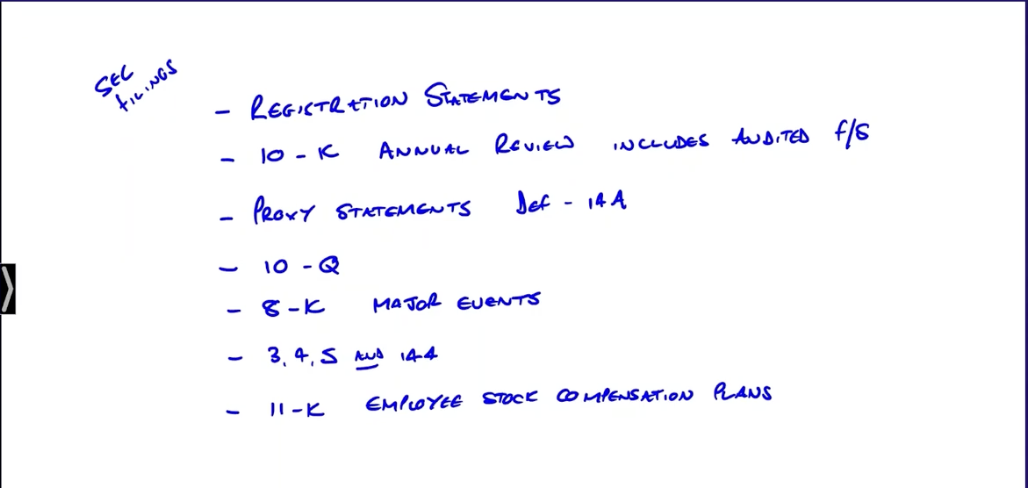 SEC
FILINGS
- REGISTRATION STATEMENTS
- 10-K ANNUAL REVIEW INCLUDES AUDITED f/S
- PROXY STATEMENTS Def - 14A
- 10-Q
- 8-K MAJOR EVENTS
- 3, 4, 5 AND 144
- 11-K EMPLOYEE STOCK COMPENSATION PLANS